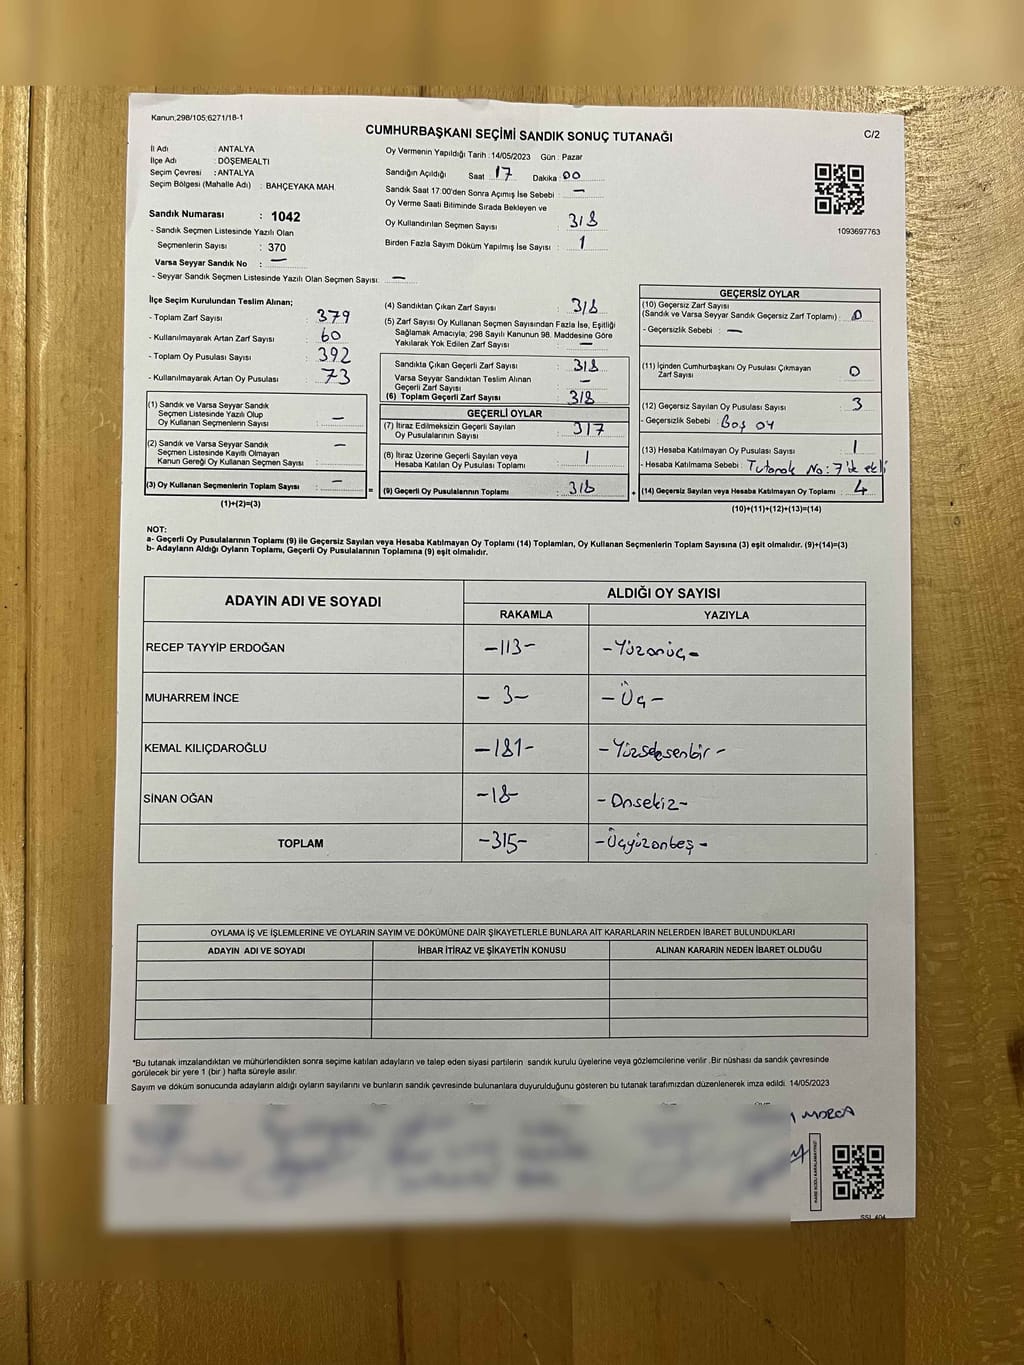 Kanun;298/105;6271/18-1
CUMHURBAŞKANI SEÇİMİ SANDIK SONUÇ TUTANAĞI
C/2
İl Adı : ANTALYA
İlçe Adı : DÖŞEMEALTI
Seçim Çevresi : ANTALYA
Seçim Bölgesi (Mahalle Adı) : BAHÇEYAKA MAH.
Sandık Numarası : 1042
- Sandık Seçmen Listesinde Yazılı Olan
Seçmenlerin Sayısı : 370
Varsa Seyyar Sandık No : —
- Seyyar Sandık Seçmen Listesinde Yazılı Olan Seçmen Sayısı : —
Oy Vermenin Yapıldığı Tarih : 14/05/2023 Gün : Pazar
Sandığın Açıldığı Saat : 17 Dakika : 00
Sandık Saat 17.00'den Sonra Açımış İse Sebebi : —
Oy Verme Saati Bitiminde Sırada Bekleyen ve
Oy Kullandırılan Seçmen Sayısı : 318
Birden Fazla Sayım Döküm Yapılmış İse Sayısı : 1
1093697763
İlçe Seçim Kurulundan Teslim Alınan;
- Toplam Zarf Sayısı : 379
- Kullanılmayarak Artan Zarf Sayısı : 60
- Toplam Oy Pusulası Sayısı : 392
- Kullanılmayarak Artan Oy Pusulası : 73
(1) Sandık ve Varsa Seyyar Sandık
Seçmen Listesinde Yazılı Olup
Oy Kullanan Seçmenlerin Sayısı : —
(2) Sandık ve Varsa Seyyar Sandık
Seçmen Listesinde Kayıtlı Olmayan
Kanun Gereği Oy Kullanan Seçmen Sayısı : —
(3) Oy Kullanan Seçmenlerin Toplam Sayısı : —
(1)+(2)=(3)
(4) Sandıktan Çıkan Zarf Sayısı : 318
(5) Zarf Sayısı Oy Kullanan Seçmen Sayısından Fazla İse, Eşitliği
Sağlamak Amacıyla; 298 Sayılı Kanunun 98. Maddesine Göre
Yakılarak Yok Edilen Zarf Sayısı : —
Sandıkta Çıkan Geçerli Zarf Sayısı : 318
Varsa Seyyar Sandıktan Teslim Alınan
Geçerli Zarf Sayısı : —
(6) Toplam Geçerli Zarf Sayısı : 318
GEÇERLİ OYLAR
(7) İtiraz Edilmeksizin Geçerli Sayılan
Oy Pusulalarının Sayısı : 317
(8) İtiraz Üzerine Geçerli Sayılan veya
Hesaba Katılan Oy Pusulası Toplamı : 1
= (9) Geçerli Oy Pusulalarının Toplamı : 318
GEÇERSİZ OYLAR
(10) Geçersiz Zarf Sayısı
(Sandık ve Varsa Seyyar Sandık Geçersiz Zarf Toplamı) : 0
- Geçersizlik Sebebi : —
(11) İçinden Cumhurbaşkanı Oy Pusulası Çıkmayan
Zarf Sayısı : 0
(12) Geçersiz Sayılan Oy Pusulası Sayısı : 3
- Geçersizlik Sebebi : Boş oy
(13) Hesaba Katılmayan Oy Pusulası Sayısı : 1
- Hesaba Katılmama Sebebi : Tutanak No: 7'de ekli
+ (14) Geçersiz Sayılan veya Hesaba Katılmayan Oy Toplamı : 4
(10)+(11)+(12)+(13)=(14)
NOT:
a- Geçerli Oy Pusulalarının Toplamı (9) ile Geçersiz Sayılan veya Hesaba Katılmayan Oy Toplamı (14) Toplamları, Oy Kullanan Seçmenlerin Toplam Sayısına (3) eşit olmalıdır. (9)+(14)=(3)
b- Adayların Aldığı Oyların Toplamı, Geçerli Oy Pusulalarının Toplamına (9) eşit olmalıdır.
ADAYIN ADI VE SOYADI
ALDIĞI OY SAYISI
RAKAMLA YAZIYLA
RECEP TAYYİP ERDOĞAN -113- -Yüzonüç-
MUHARREM İNCE -3- -Üç-
KEMAL KILIÇDAROĞLU -181- -Yüzseksenbir-
SİNAN OĞAN -18- -Onsekiz-
TOPLAM -315- -Üçyüzonbeş-
OYLAMA İŞ VE İŞLEMLERİNE VE OYLARIN SAYIM VE DÖKÜMÜNE DAİR ŞİKAYETLERLE BUNLARA AİT KARARLARIN NELERDEN İBARET BULUNDUKLARI
ADAYIN ADI VE SOYADI İHBAR İTİRAZ VE ŞİKAYETİN KONUSU ALINAN KARARIN NEDEN İBARET OLDUĞU
*Bu tutanak imzalandıktan ve mühürlendikten sonra seçime katılan adayların ve talep eden siyasi partilerin sandık kurulu üyelerine veya gözlemcilerine verilir .Bir nüshası da sandık çevresinde
görülecek bir yere 1 (bir) hafta süreyle asılır.
Sayım ve döküm sonucunda adayların aldığı oyların sayılarını ve bunların sandık çevresinde bulunanlara duyurulduğunu gösteren bu tutanak tarafımızdan düzenlenerek imza edildi. 14/05/2023